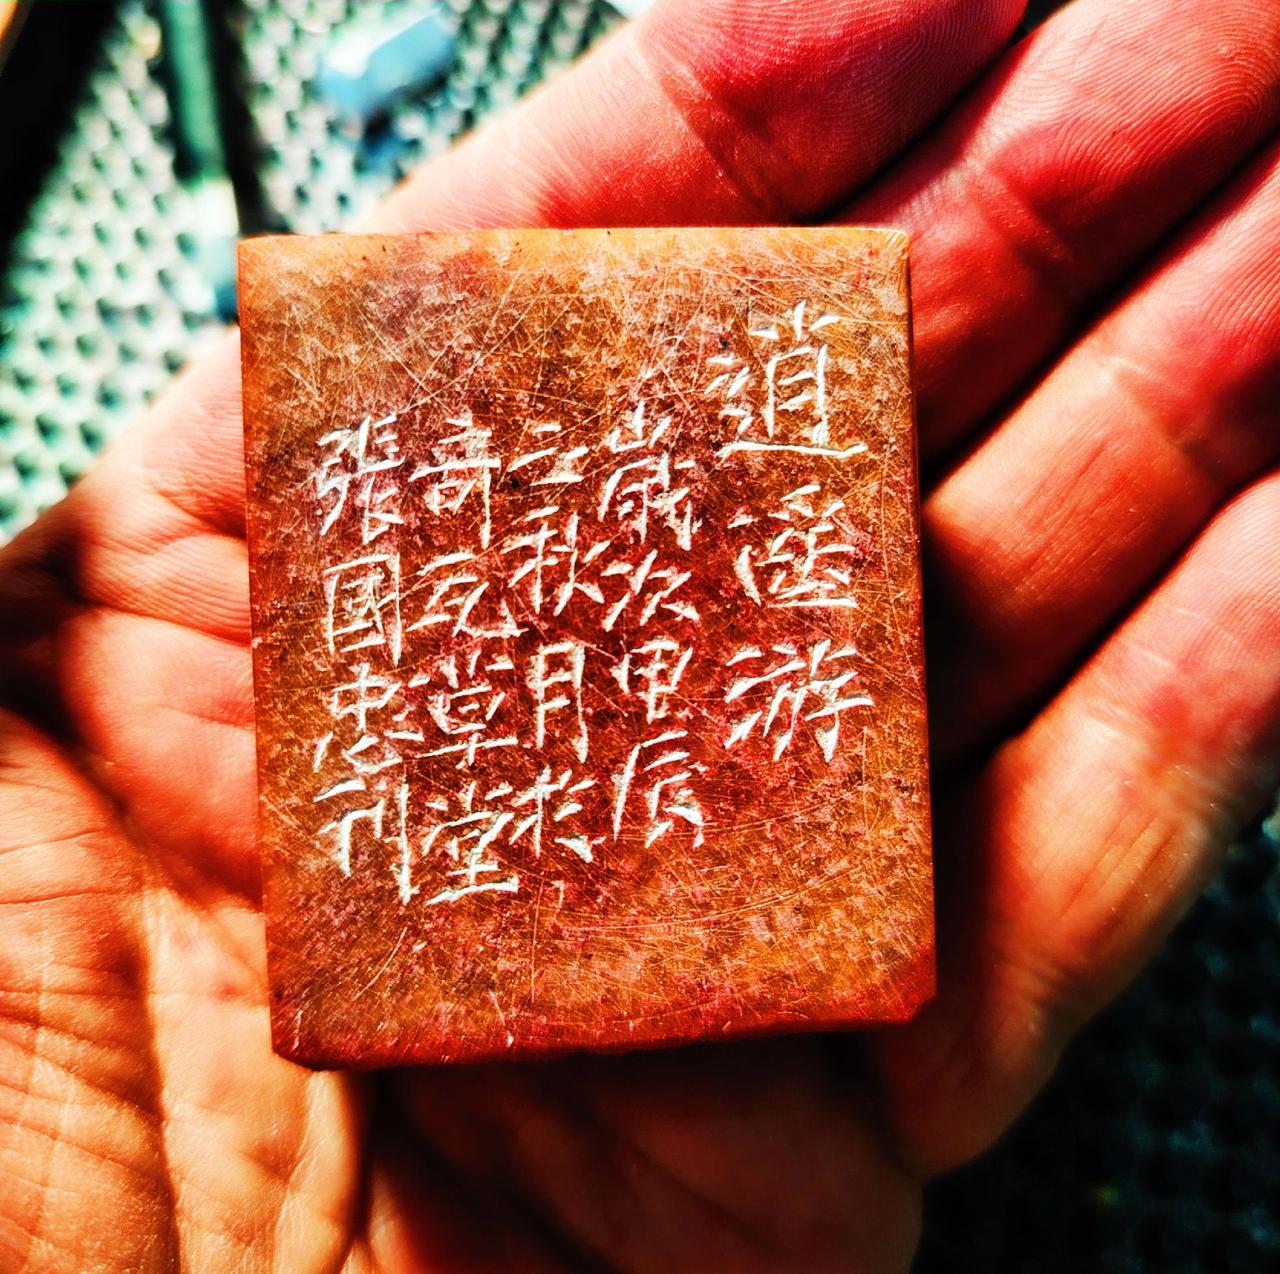 逍遙游
歲次甲辰
之秋月於
奇瓦草堂
張國忠刊